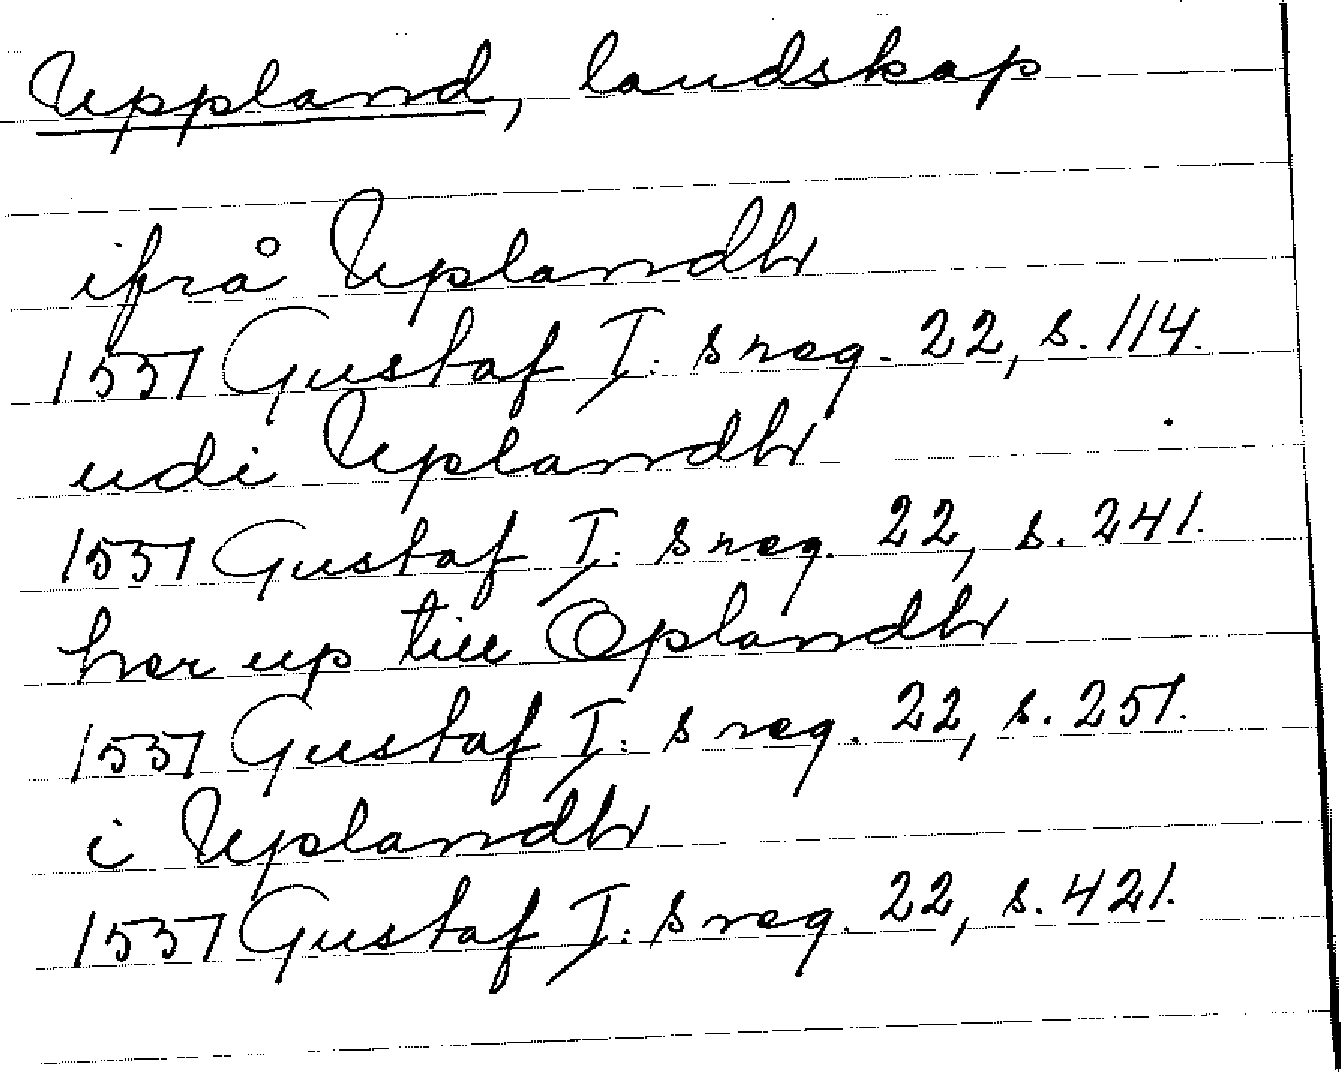 Uppland, landskap
ifrå Uplandh
1551 Gustaf I:s reg. 22, s. 114.
udi Uplandh
1551 Gustaf I:s reg. 22, s. 241.
her up till Oplandh
1551 Gustaf I:s reg. 22, s. 251.
i Uplandh
1551 Gustaf I:s reg. 22, s. 421.